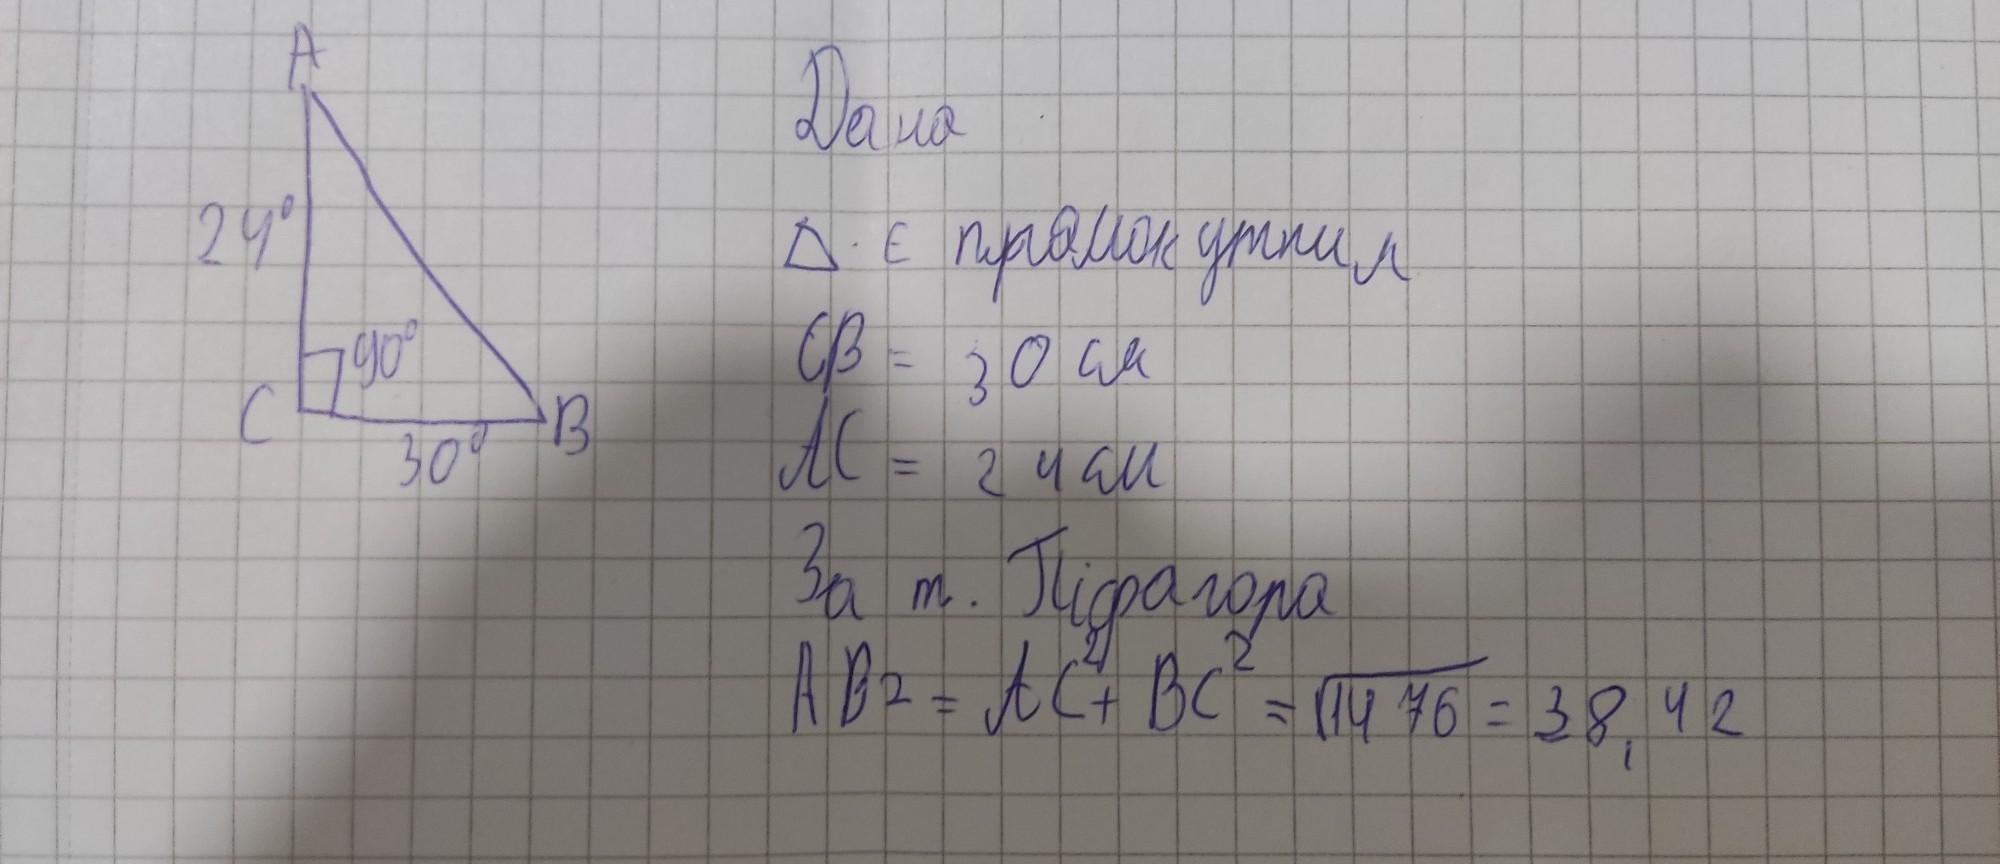 A
24°
90°
C
30°
B
Дано
△ є прямокутним
CB = 30 см
AC = 24 см
За т. Піфагора
AB2 = AC² + BC² = √1476 = 38,42